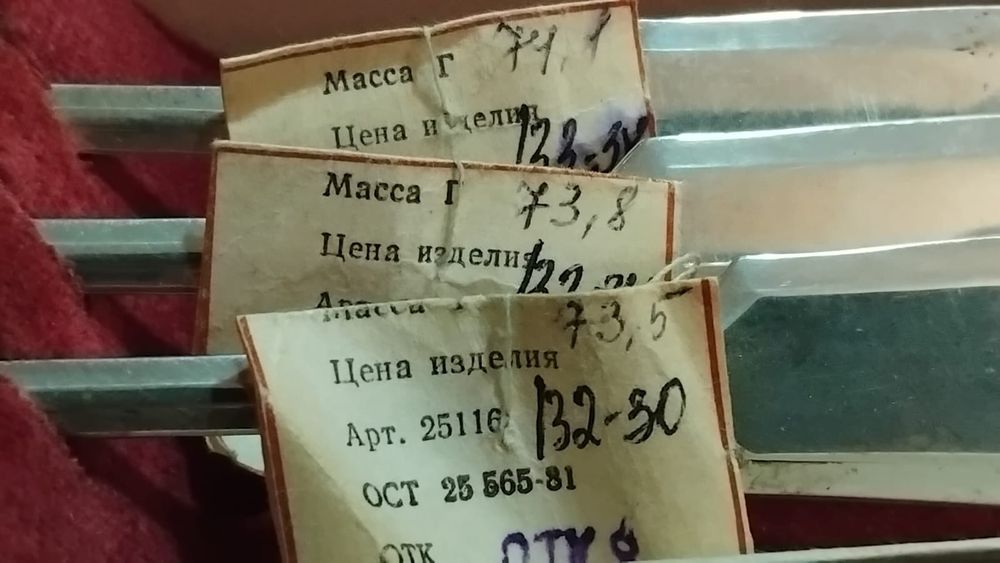 Масса Г 74,1
Цена изделия
Масса Г 73,8
Цена изделия
Масса 73,5
Цена изделия
Арт. 25116 132-30
ОСТ 25 565-81
ОТК ОТК 6